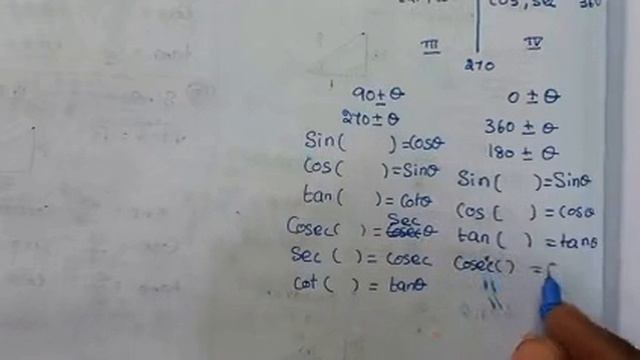 cos, sec 360
III IV
270
90 ± θ
270 ± θ
Sin( ) = cosθ
Cos( ) = Sinθ
tan( ) = Cotθ
Cosec( ) = Sec θ
Sec ( ) = cosec
Cot ( ) = tanθ
0 ± θ
360 ± θ
180 ± θ
Sin( ) = Sinθ
Cos( ) = Cosθ
tan( ) = tanθ
Cosec( ) =